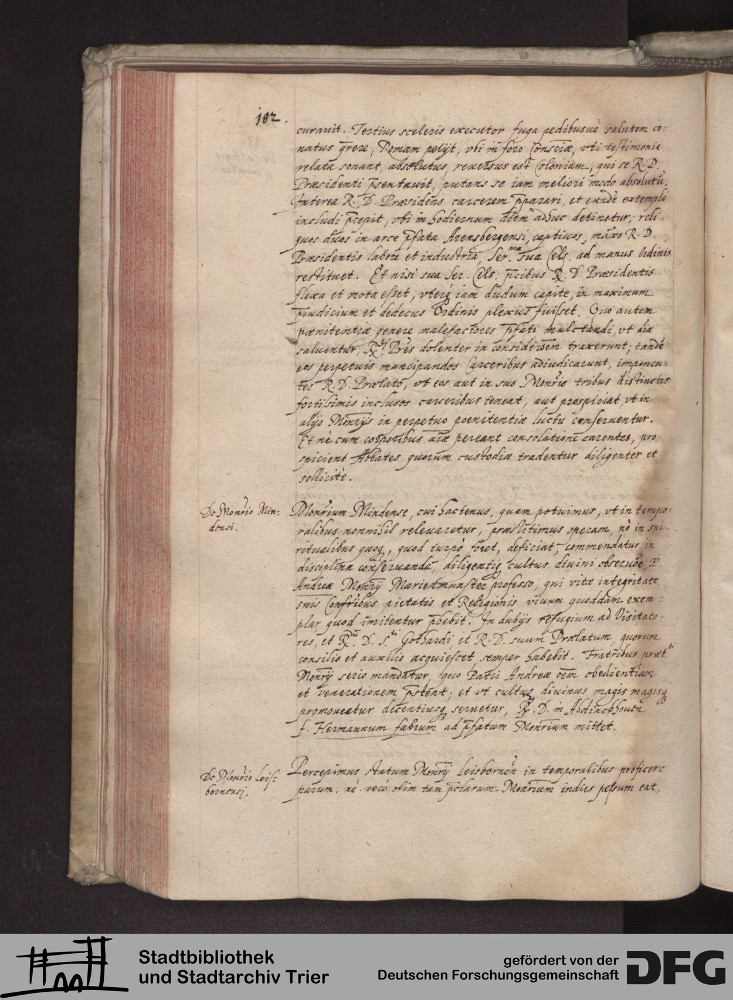 182.
curavit. Tertius sceleris executor fuga pedibusue salutem co-
natus grere, Romam petyt, vbi in foro Consciæ, vti testimonia
relata sonant, absolutus, reuersus est Coloniam, qui se R. D.
Præsidenti pñtauit, putans se iam meliori modo absolutũ.
Interea R. D. Præsidens carcerem pparari, et eundẽ extemplò
includi pcepit, vbi in hodiernum diem adhuc detinetur; reli-
quos duos in arce pfata Arensbergensi, captiuos, maxo R. D.
Præsidentis labore et industria, Ser.ma sua Cels. ad manus Ordinis
restituet. Et nisi sua Ser. Cels. pcibus R. D. Præsidentis
flexa et mota esset, vterq iam dudum capite, in maximum
piudicium et dedecus Ordinis plexus fuisset. Quo autem
pœnitentiæ genere malefactores pfati mulctandi, vt aiæ
saluentur, R.di Pres dolenter in consideròem traxerunt; tandẽ
eos perpetuis mancipandos Carceribus adiudicarunt, imponen-
tes R. D. Prælato, vt eos aut in suo Monrio tribus distinctis
fortissimis inclusos carceribus teneat, aut prospiciat, vt in
alijs Monrijs in perpetuo poenitentiæ luctu conseruentur.
Et nè cum corporibus aiæ pereant consolatione carentes, pro
spiciens Abbates quorum custodiæ tradentur diligenter et
sollicitè.
De Monrio Min-
densi.
Monrium Mindense, cui hactenus, quam potuimus, vt in tempo-
ralibus nonnihil releuaretur, præstitimus operam, nè in spi-
ritualibus quoq, quod turpe foret, deficiat, commendatur in
disciplina conseruanda, diligentiq cultus diuini obseruòe, P.
Andreæ Monrij Marienmunster professo, qui vitæ integritate
suis Confribus pietatis et Religionis viuum quoddam exem-
plar quod imitentur phebit. In dubijs refugium ad Visitato-
res, et R. D. S.ti Gothardi et R. D. suum Prælatum quorum
consilio et auxilio acquiescet semper habebit. Fratribus præt.ti
Monrij serio mandatur, quo Patri Andreæ oem obedientiam
et venerationem pstent; et vt cultus diuinus magis magisq
promoueatur decentiusq seruetur, R. D. in Abdinckhouen
f. Hermannum fabrum ad pfatum Monrium mittet.
De Monrio Leis-
bornensi.
Percepimus Statum Monrij Leisbornen in temporalibus proficere
parum. nè verò olim tam pclarum Monrium indies pessum eat,
Stadtbibliothek
und Stadtarchiv Trier
gefördert von der
Deutschen Forschungsgemeinschaft
DFG